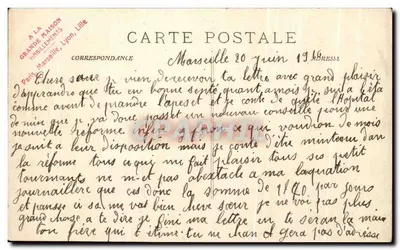 A LA
GRANDE MAISON
HABILLEMENTS
Paris, Marseille, Lyon, Lille
CARTE POSTALE
CORRESPONDANCE
ADRESSE
Marseille 20 juin 19
Chere seur je vien de recevoir la lettre avec grand plaisir
d'apprendre que tu es en bonne santé quant a moi je suis a l'été
comme avent de prandre l'apeset et je conte de quité l'Hopital
de min que je va donc passet un nouvau conseille pour une
nouvelle reforme enfin a fore que voudron de mois
je suit a leur disposition mais je conte d'être mintenau dan
la reforme tous ce qui me fait plaisir tous ses petit
tourmant ne m et pas obstacle a ma
journaillere que ces donc la somme de 1f40 par jours
et pansse si sa me vas bien chere sœur je ne voi pas plus
grand chose a te dire je fini ma lettre en te seran la main
ton frère qui t'étime tu ne man et sera pas d'adresse